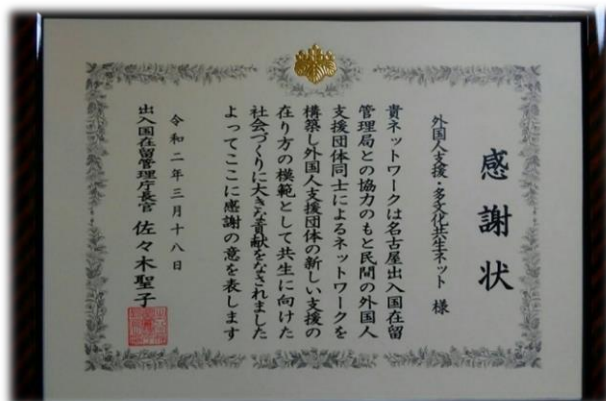 感謝状
外国人支援・多文化共生ネット 様
貴ネットワークは名古屋出入国在留
管理局との協力のもと民間の外国人
支援団体同士によるネットワークを
構築し外国人支援団体の新しい支援の
在り方の模範として共生に向けた
社会づくりに大きな貢献をなされました
よってここに感謝の意を表します
令和二年三月十八日
出入国在留管理庁長官 佐々木聖子